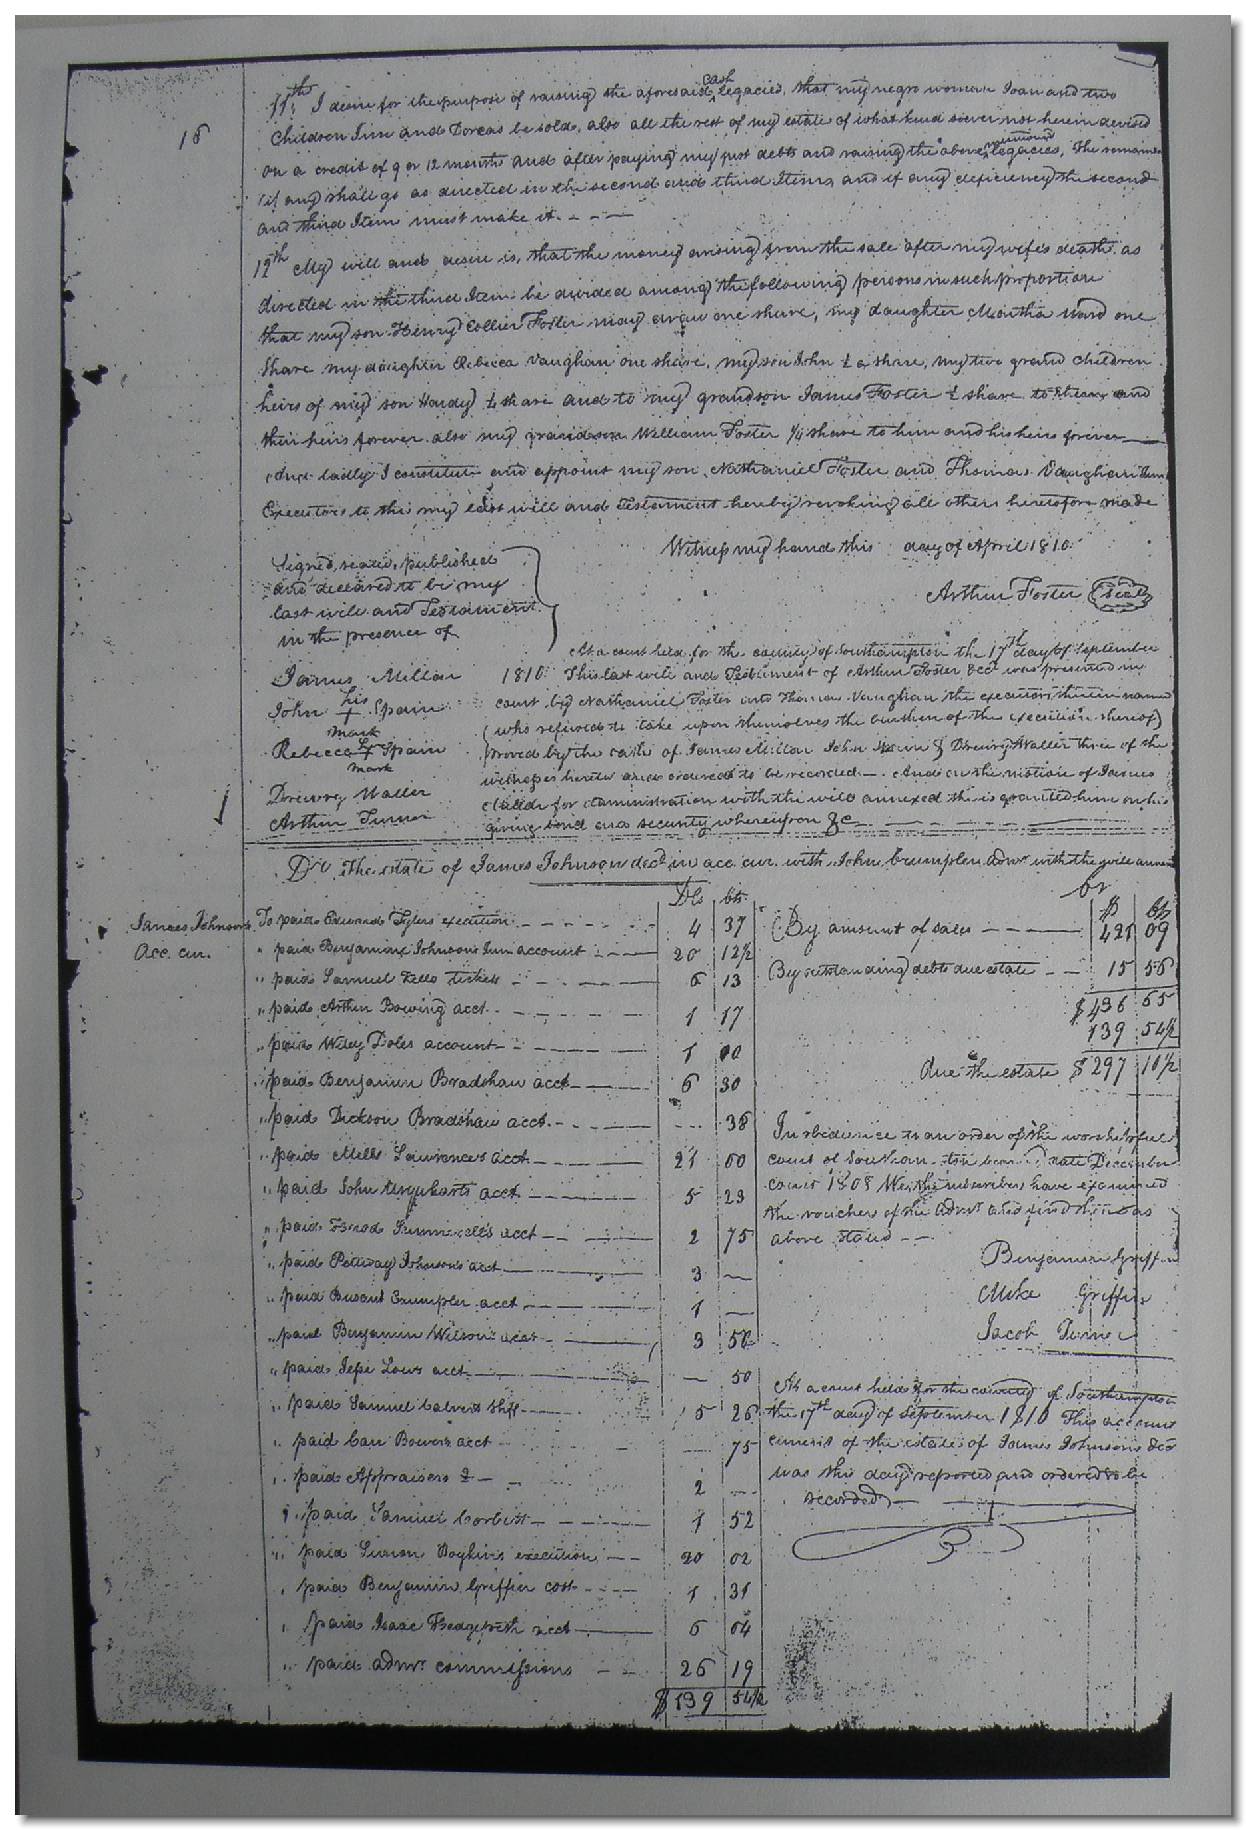 16
11th I desire for the purpose of raising the aforesaid cash legacies, that my negro woman Joan and two
Children Finn and Dorcas be sold, also all the rest of my estate of what kind soever not herein devised
on a credit of 9 or 12 months and after paying my just debts and raising the above mentioned legacies, the remainder
(if any) shall go as directed in the second and third Items, and if any deficiency the second
and third Item must make it. - - -
12th My will and desire is, that the money arising from the sale after my wife's death as
directed in the third Item be divided among the following persons in such proportion
that my son Henry Collier Foster may draw one share, my daughter Martha Ward one
Share my daughter Rebecca Vaughan one share, my son John ½ a share, my two grand children
heirs of my son Hardy ½ share and to my grandson James Foster ½ share to them and
their heirs forever also my grandson William Foster ¼ share to him and his heirs forever
And lastly I constitute and appoint my son Nathaniel Foster and Thomas Vaughan
Executors to this my last will and Testament hereby revoking all others heretofore made
Witness my hand this day of April 1810.
Arthur Foster (Seal)
Signed, sealed, published
and declared to be my
last will and Testament
in the presence of
James Millar
his
John + Spain
mark
Rebecca + Spain
mark
Drewry Waller
Arthur Turner
At a court held for the county of Southampton the 17th day of September
1810 This last will and Testament of Arthur Foster decd was presented in
court by Nathaniel Foster and Thomas Vaughan the executors therein named
(who refused to take upon themselves the burthen of the execution thereof)
proved by the oaths of James Millar John Spain & Drewry Waller three of the
witnesses hereto and ordered to be recorded - And on the motion of James
for administration with the will annexed the is granted him on his
giving bond and security whereupon &c
Dr The estate of James Johnson decd in acc. cur. with John Crumpler admr with the will annex
Cr
James Johnson's
Acc. cur.
Dls Cts
To paid Edward Tylers execution 4 37
" paid Benjamin Johnson's Junr account 20 12½
" paid Samuel Kello tickets 6 13
" paid Arthur Bowing acct. 1 17
" paid Wiley Doles account 1 00
" paid Benjamin Bradshaw acct 6 30
" paid Dickson Bradshaw acct. 36
" paid Mills Lawrences acct 21 00
" paid John Urquharts acct 5 23
" paid acct 2 75
" paid Pettway Johnson's acct 3 —
" paid Crumpler acct 1 —
" paid Benjamin Wilsons acct 3 50
" paid Jesse acct — 50
" paid Samuel Calvert Shff 5 26
" paid Carr Bowers acct — 75
" paid Appraisers 2 —
" paid Samuel Corbitt 1 52
" paid Simon Boykins execution 20 02
" paid Benjamin Griffin cost 1 31
" paid Isaac acct 6 04
" paid admr. commissions 26 19
$139 54½
$ Cts
By amount of sales 421 09
By outstanding debts due estate 15 56
$436 65
139 54½
due the estate $297 10½
In obedience to an order of the worshipful
court of Southampton date December
court 1808 We the subscribers have examined
the vouchers of the admr and find them as
above stated - -
Benjamin Griffin
Mike Griffin
Jacob Turner
At a court held for the county of Southampton
the 17th day of September 1810 This account
current of the estate of James Johnson decd
was this day reported and ordered to be
recorded